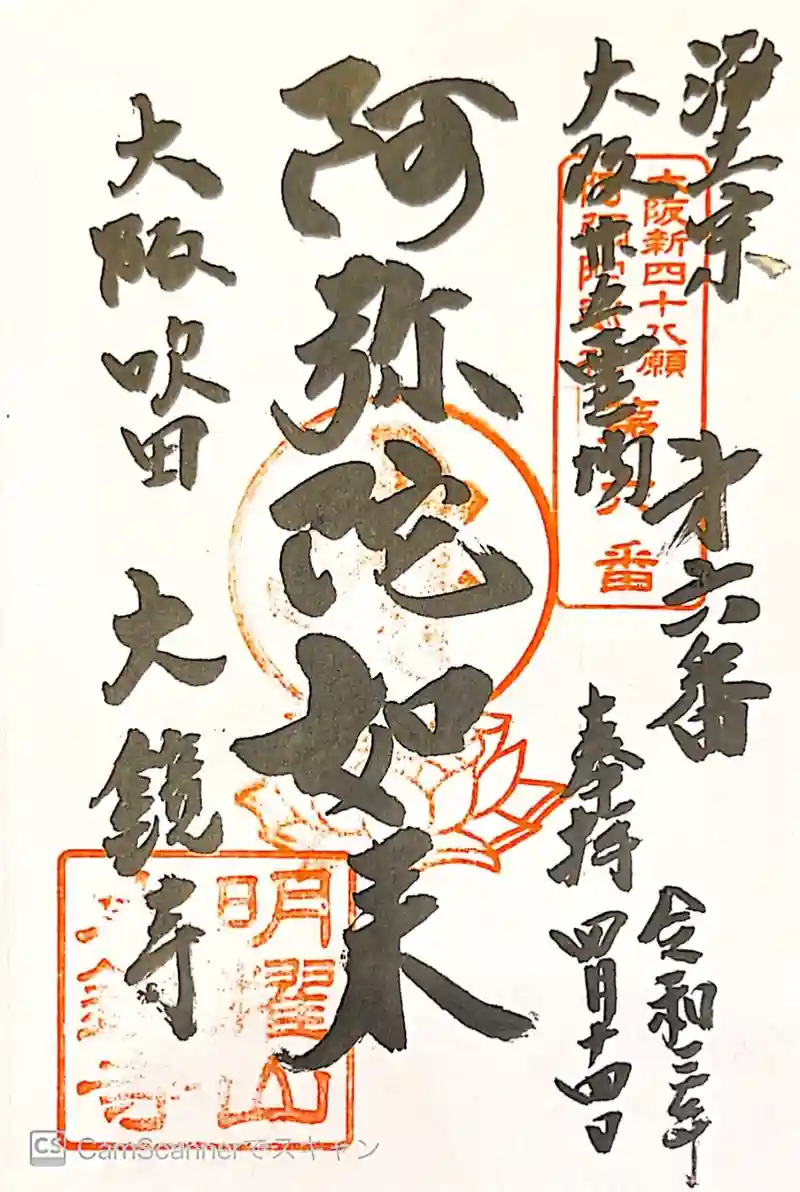 浄土宗
大阪廿五霊場
第六番
奉拝
令和三年
四月十四日
阿弥陀如来
大阪吹田 大鏡寺
大阪新四十八願
番
明耀山
大鏡寺
CS CamScannerでスキャン